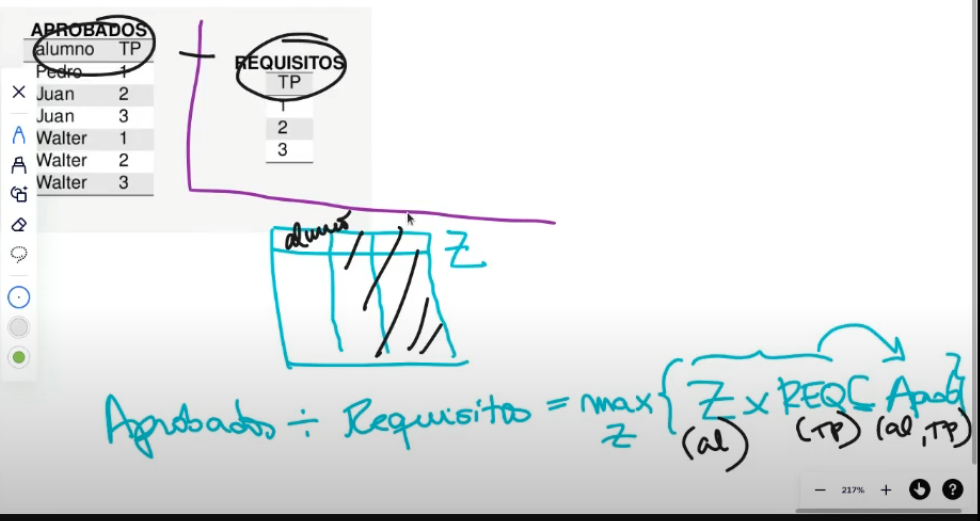 APROBADOS
alumno TP
Pedro 1
Juan 2
Juan 3
Walter 1
Walter 2
Walter 3
REQUISITOS
TP
1
2
3
alumno
Z
Aprobados ÷ Requisitos = max { Z x REQ ⊆ Aprob }
Z (al) (TP) (al, TP)
217%